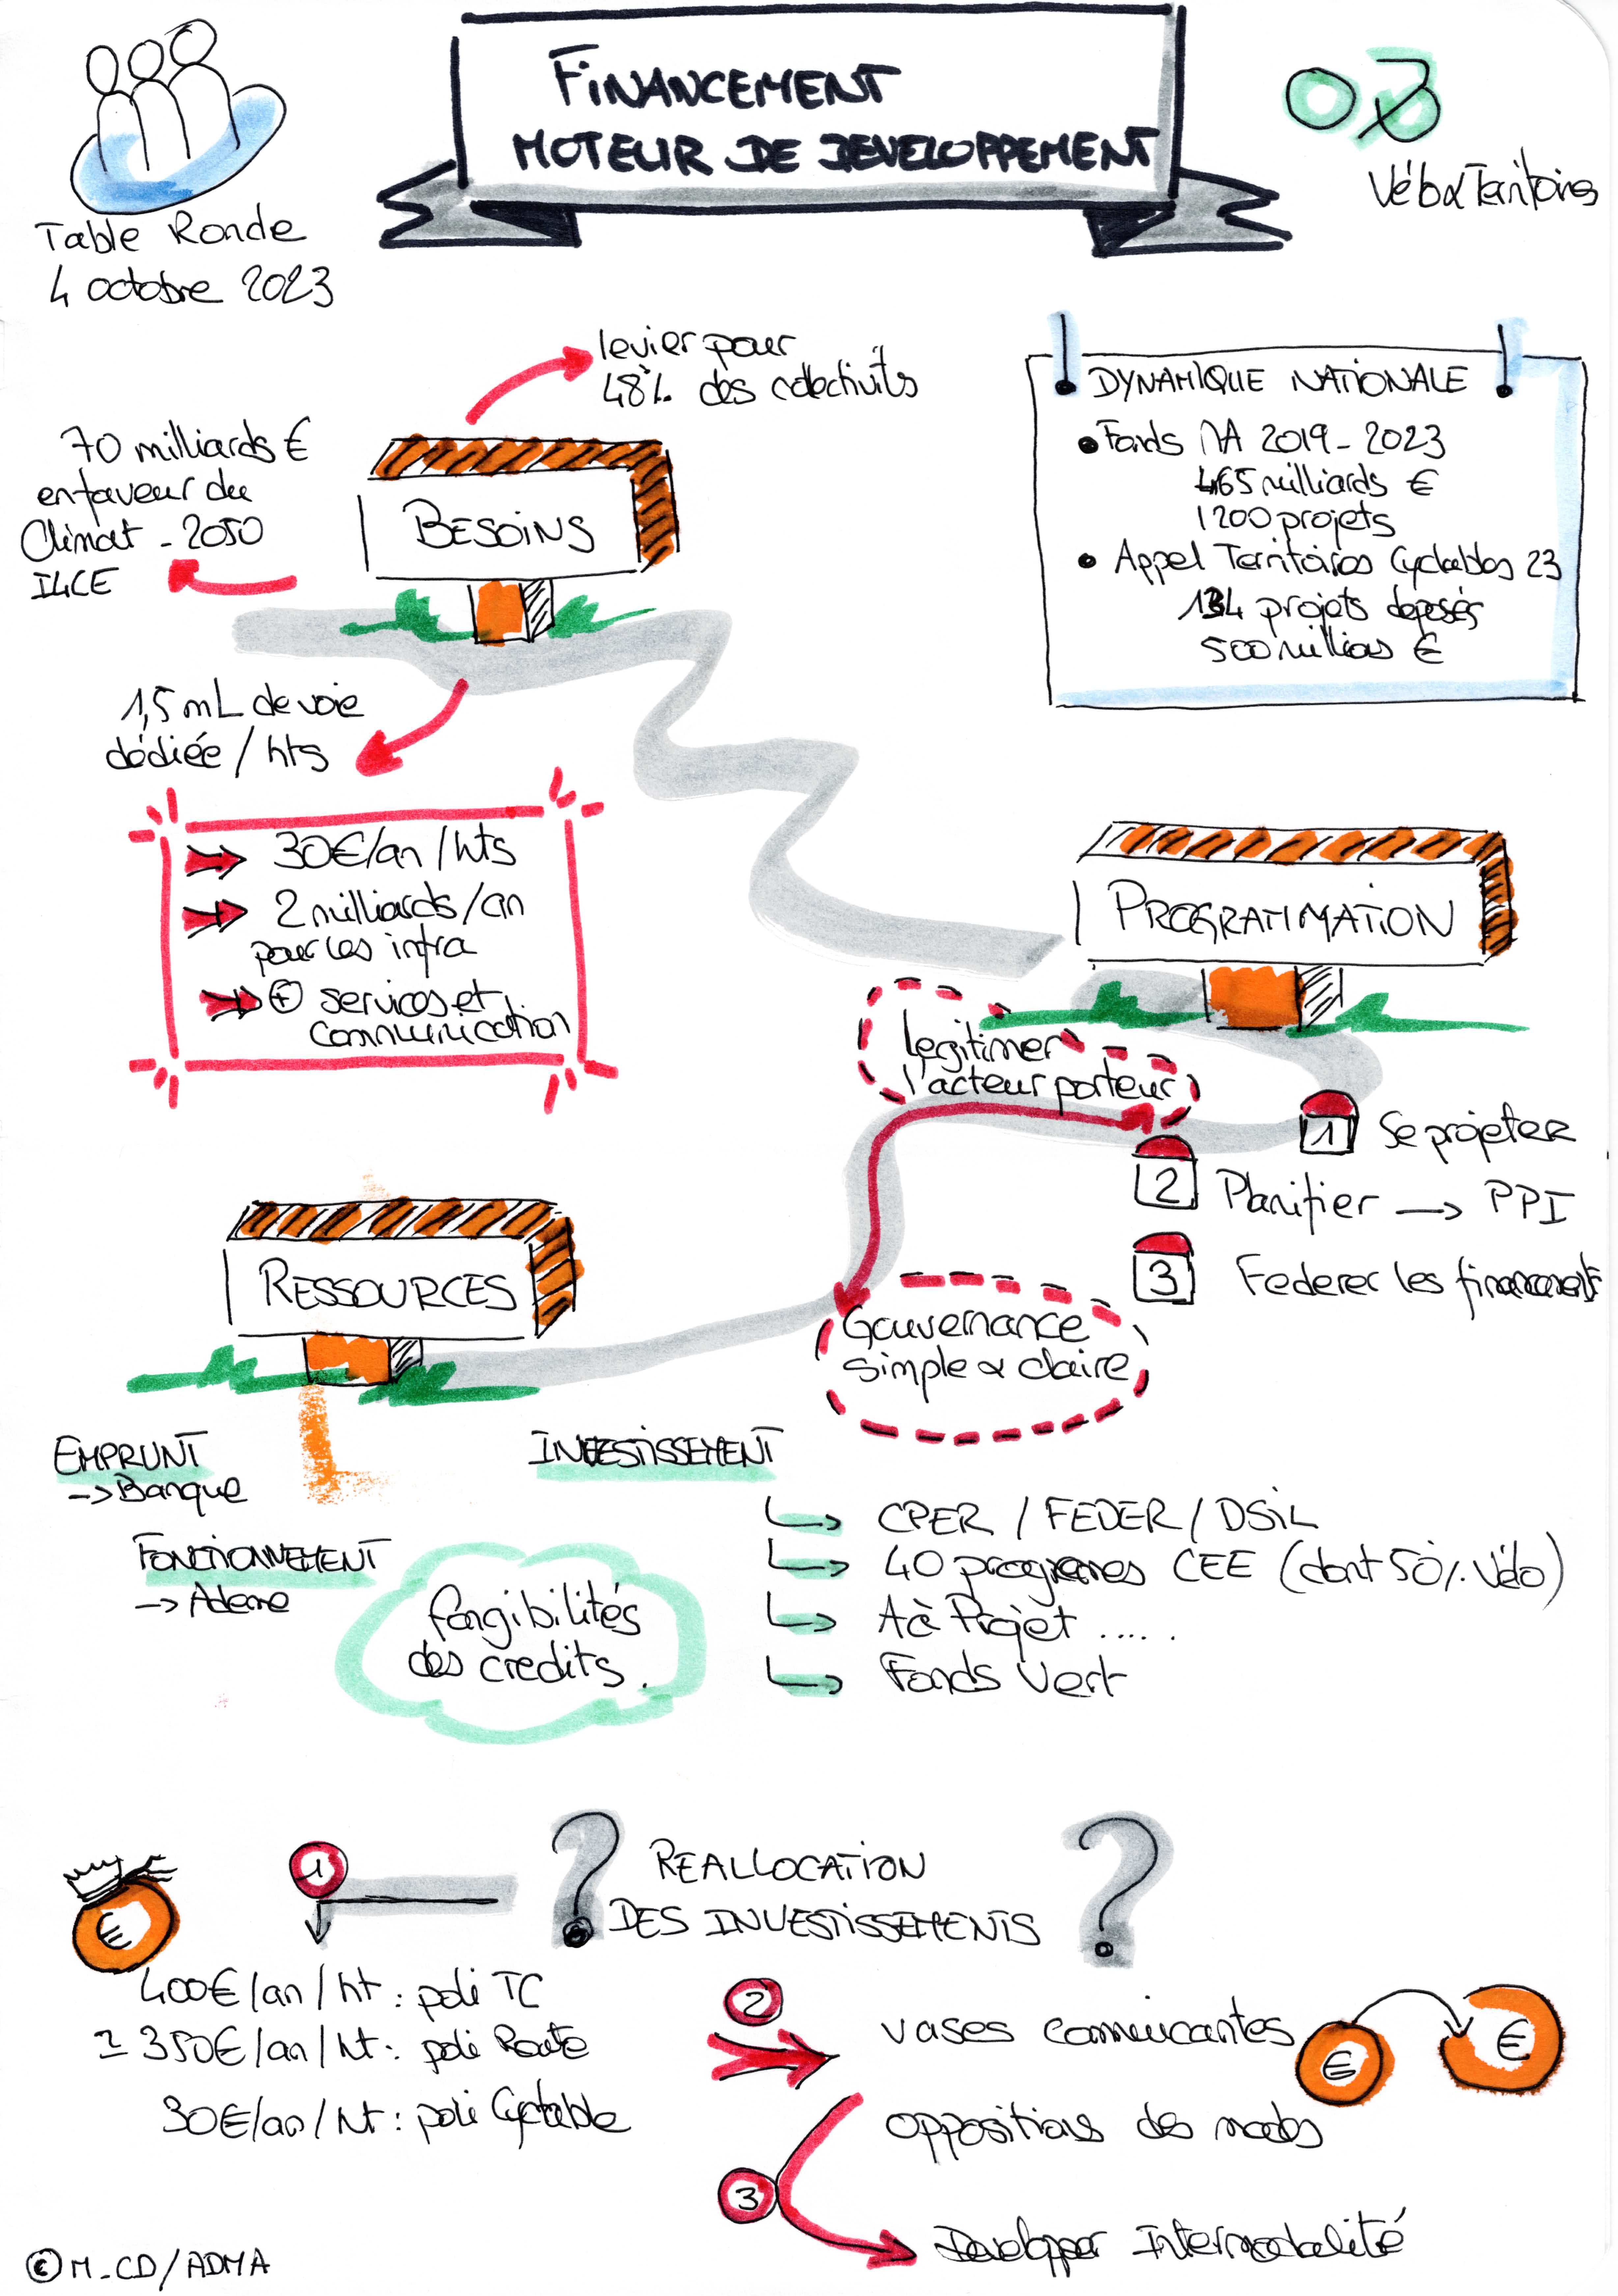 FINANCEMENT
MOTEUR DE DEVELOPPEMENT
Table Ronde
4 octobre 2023
Vélo & Territoires
levier pour
48% des collectivités
70 milliards €
en faveur du
Climat - 2050
I4CE
BESOINS
DYNAMIQUE NATIONALE
• Fonds MA 2019-2023
465 milliards €
1200 projets
• Appel Territoires Cyclables 23
134 projets déposés
500 millions €
1,5 mL de voie
dédiée / hts
30€/an/hts
2 milliards/an
pour les infra
+ services et
communication
PROGRAMMATION
Legitimer
l'acteur porteur
1 Se projeter
2 Planifier → PPI
3 Federer les financements
RESSOURCES
Gouvernance
simple & claire
EMPRUNT
-> Banque
FONCTIONNEMENT
-> Ademe
INVESTISSEMENT
CPER / FEDER / DSIL
40 programmes CEE (dont 50% Vélo)
A à Projet .....
Fonds Vert
fongibilités
des credits.
€
1
? REALLOCATION
DES INVESTISSEMENTS ?
400€/an/ht : poli TC
± 350€/an/ht : poli Route
30€/an/ht : poli Cyclable
2
vases communicantes
€ €
oppositions des modes
3
Developper Intermodalité
© M_CD/ADMA